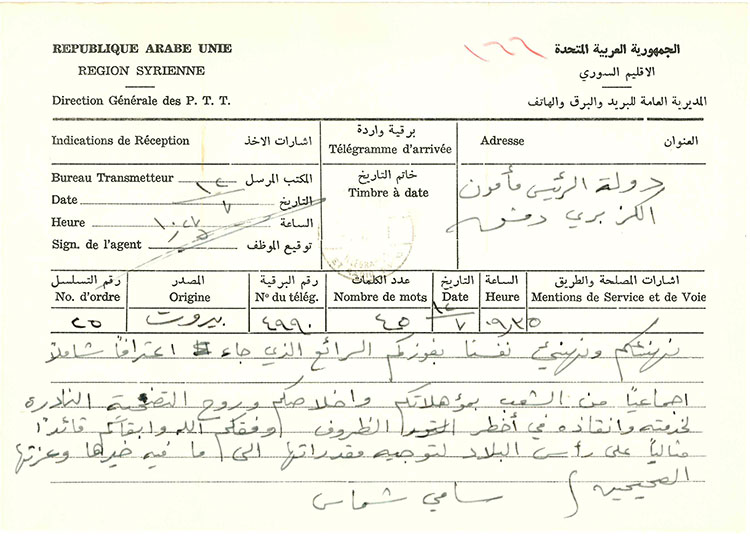 REPUBLIQUE ARABE UNIE
REGION SYRIENNE
Direction Générale des P. T. T.
١٦٦
الجمهورية العربية المتحدة
الاقليم السوري
المديرية العامة للبريد والبرق والهاتف
Indications de Réception اشارات الاخذ
برقية واردة
Télégramme d'arrivée
Adresse العنوان
Bureau Transmetteur المكتب المرسل
Date التاريخ ١٤/٧
Heure الساعة ١٠
Sign. de l'agent توقيع الموظف
خاتم التاريخ
Timbre à date
دولة الرئيس مأمون
الكزبري دمشق
رقم التسلسل المصدر رقم البرقية عدد الكلمات التاريخ الساعة اشارات المصلحة والطريق
No. d'ordre Origine Nº du télég. Nombre de mots Date Heure Mentions de Service et de Voie
٢٥ بيروت ٤٩٩٠ ٤٥ ١٤/٧ ٠٩/٣٥
نهنئكم ونهنئ نفسنا بفوزكم الرائع الذي جاء اعترافاً شاملاً
اجماعياً من الشعب بمؤهلاتكم واخلاصكم وروح التضحية النادره
لخدمته وانقاذه في أخطر الظروف وفقكم الله وابقاكم قائداً
مثالياً على رأس البلاد لتوجيه مقدراتها الى ما فيه خيرها وعزتها
الصحيحه
سامي شماس